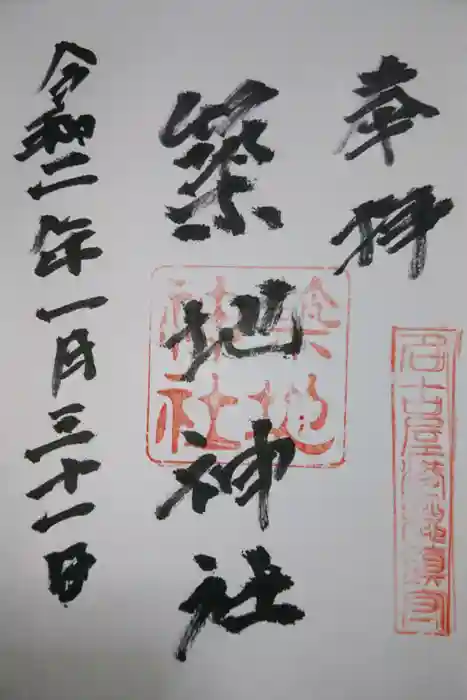 奉拝
名古屋港総鎮守
築地神社
築地神社
令和二年一月三十一日